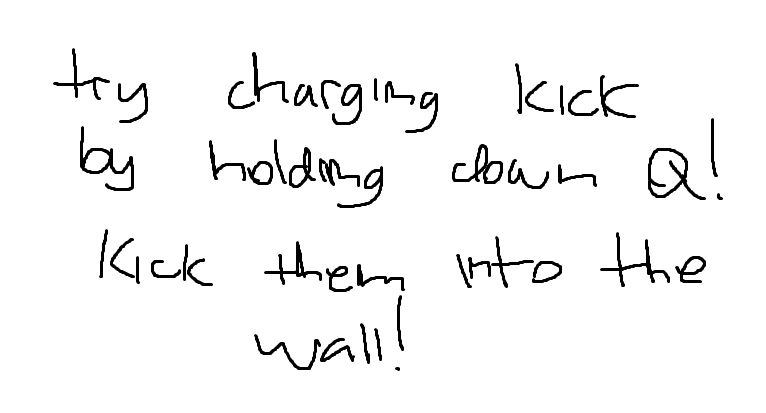 try charging kick
by holding down Q!
Kick them into the
wall!